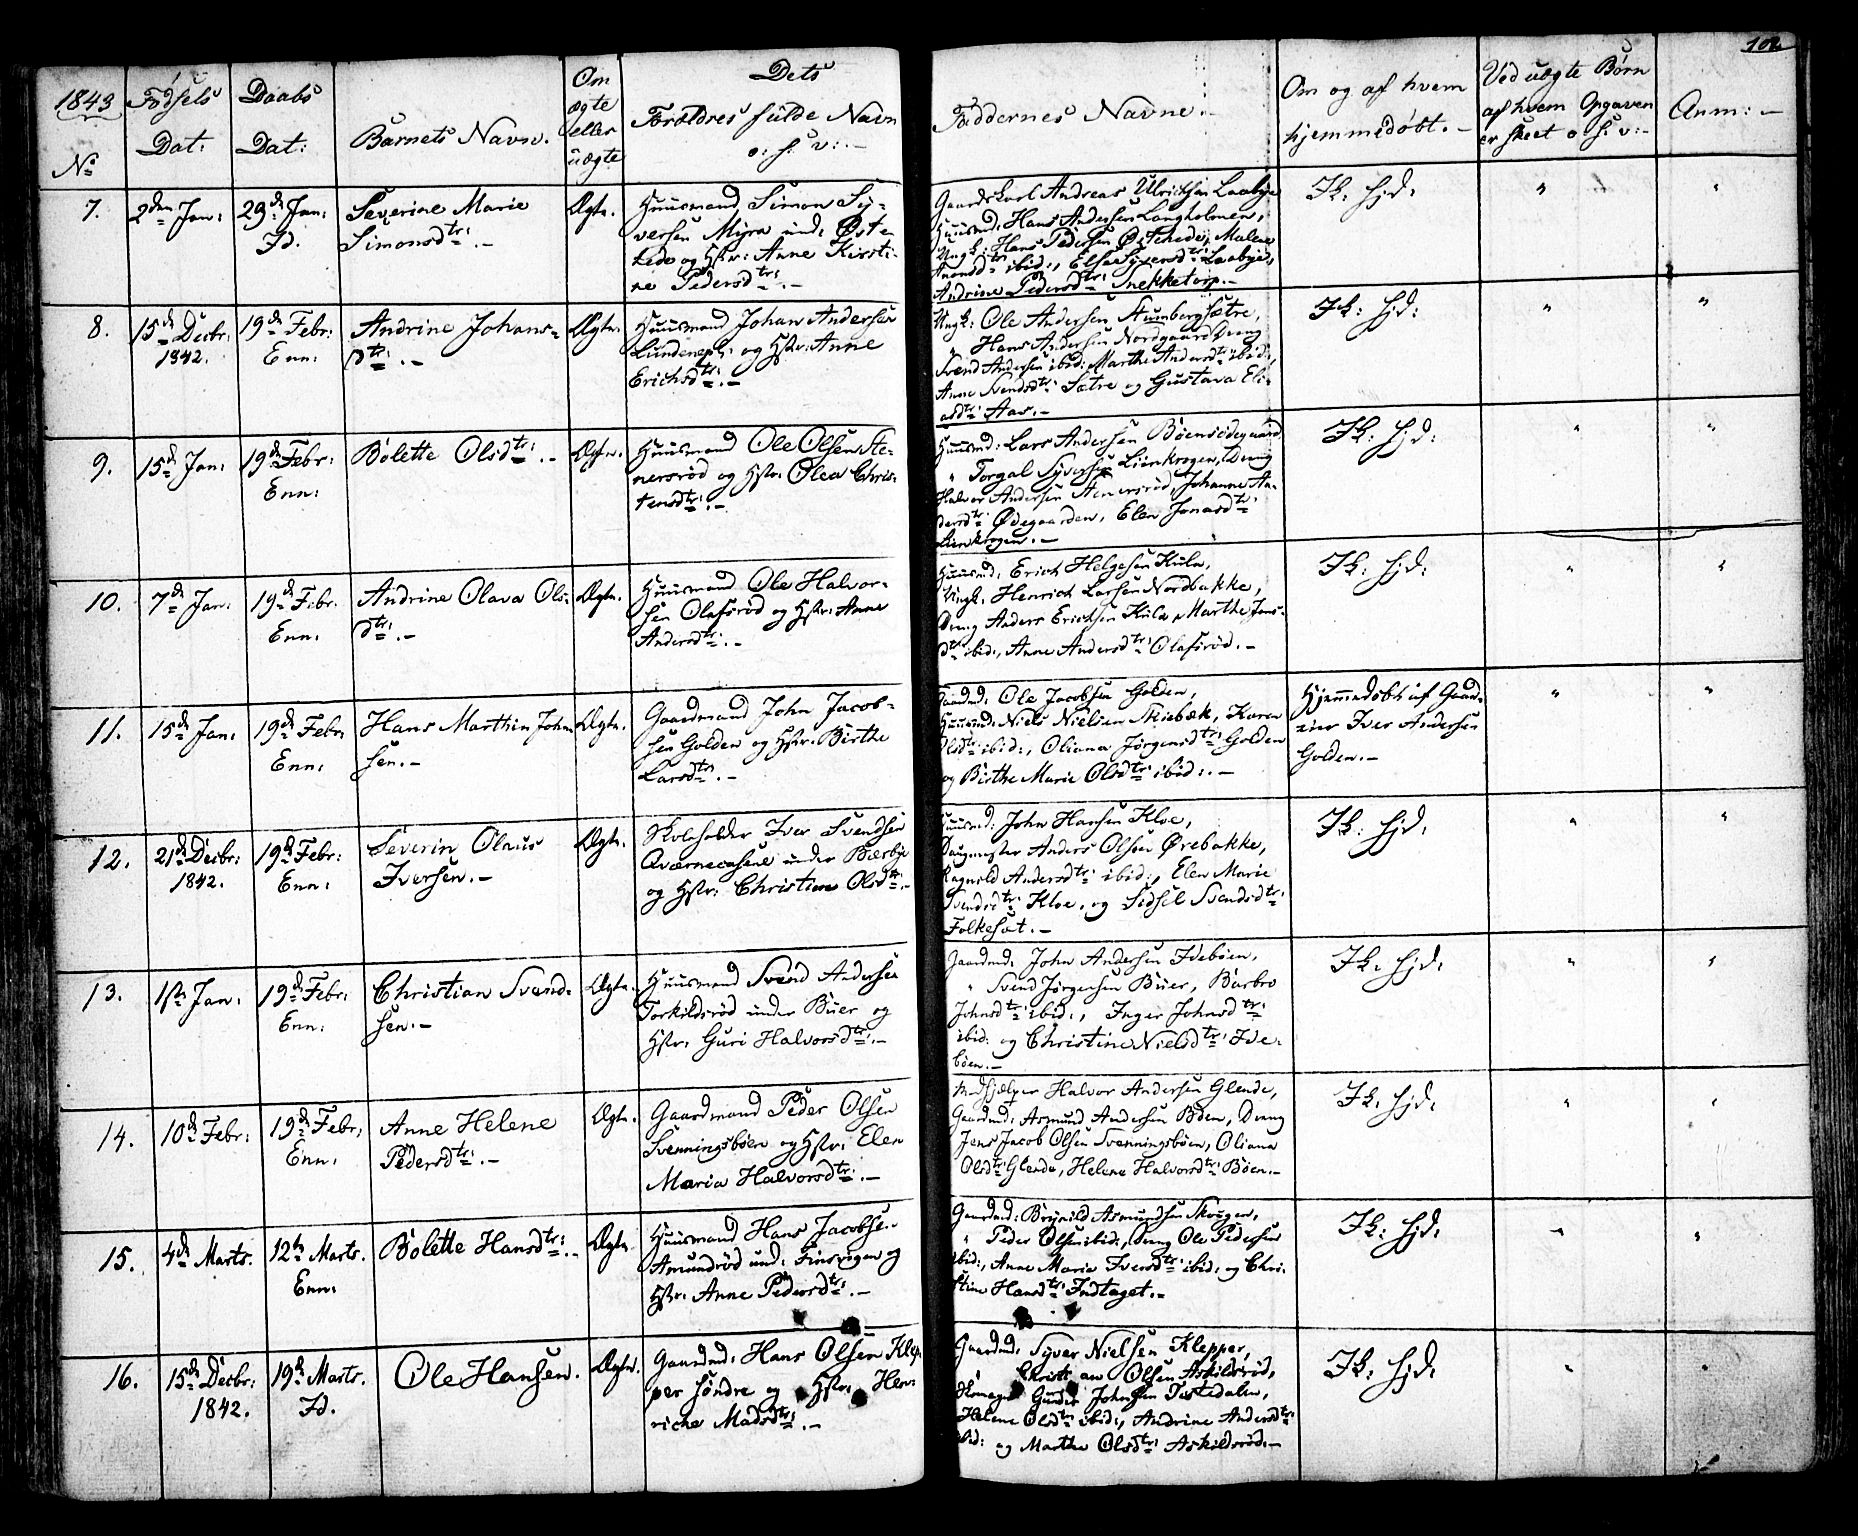 102
1843
No
Fødsels
Dat:
Daabs
Dat:
Barnets Navn.
Om
ægte
eller
uægte
Dets
Forældres fulde Navn
o: s: v: -
Faddernes Navne. -
Om og af hvem
hjemmedøbt. -
Ved uægte Børn
af hvem Opgaven
er skeet o: s: v: -
Anm: -
7.
2den Jan:
29de Jan:
Id.
Severine Marie
Simonsdtr: -
Ægte.
Huusmand Simon Sy-
versen Myra und: Øste
hede og Hstr: Anne Kirsti-
ne Pedersdtr: -
Gaardskarl Andreas Ulrichsen Laabye
Huusmd: Hans Andersen Langholmen,
Ungk: Hans Pedersen Ø: Thede, Malene
ibid:, Else Syversdtr: Laabye,
Andrine Pedersdtr: Snekketorp. -
Ik: hjd:
"
"
8.
15de Decbr:
1842.
19de Febr:
Enn:
Andrine Johans-
dtr: -
Ægte.
Huusmand Johan Andersen
Lundenepl: og Hstr: Anne
Erichsdtr: -
Ungk: Ole Andersen Stumberg Sætre,
" Hans Andersen Nordgaard Dreng
Svend Andersen ibid: Marthe Andersdtr: ibid:,
Anne Svendsdtr: Sætre og Gustava Eli-
asdtr: Aas. -
Ik: hjd:
"
"
9.
15de Jan:
19de Febr:
Enn:
Bolette Olsdtr: -
Ægte.
Huusmand Ole Olsen Ste-
nersrød og Hstr: Olea Chris-
tensdtr: -
Huusmd: Lars Andersen Bøensødegaard
" Torgal Syversen Lienkrogen, Dreng
Halvor Andersen Stenersrød, Johanne An-
dersdtr: Ødegaarden, Elen Jonasdtr:
Lienkrogen. -
Ik: hjd:
"
"
10.
7de Jan:
19de Febr:
Enn:
Andrine Olava Ols-
dtr: -
Ægte.
Huusmand Ole Halvor-
sen Olafsrød og Hstr: Anne
Andersdtr: -
Huusmd: Erich Helgesen Kula,
Ungk: Henrich Larsen Nordbakke,
Dreng Anders Erichsen Kula, Marthe Jens-
dtr: ibid:, Anne Andersdtr: Olafsrød. -
Ik: hjd:
"
"
11.
15de Jan:
19de Febr:
Enn:
Hans Marthin John-
sen. -
Ægte.
Gaardmand John Jacob-
sen Golden og Hstr: Birthe
Larsdtr: -
Gaardmd: Ole Jacobsen Golden,
Huusmd: Niels Nielsen Skiebæk, Karen
Olsdtr: ibid:, Oliana Jørgensdtr: Golden
og Birthe Marie Olsdtr: ibid: -
Hjemmedøbt af Gaard-
eier Iver Andersen
Golden. -
"
"
12.
21de Decbr:
1842.
19de Febr:
Enn:
Severin Olaus
Iversen. -
Ægte.
Skoleholder Iver Svendsen
Qværnenesene under Bærbye
og Hstr: Christine Olsdtr: -
Huusmd: John Hansen Kloe,
Saugmester Anders Olsen Ørebakke,
Ragnild Andersdtr: ibid:, Elen Marie
Svendsdtr: Kloe, og Sidsel Svendsdtr:
Folkesæt. -
Ik: hjd:
"
"
13.
1ste Jan:
19de Febr:
Enn:
Christian Svend-
sen. -
Ægte.
Huusmand Svend Andersen
Torkildsrød under Büer og
Hstr: Guri Halvorsdtr: -
Gaardmd: John Andersen Idebøen,
" Svend Jørgensen Büer, Barbro
Johnsdtr: ibid:, Inger Johnsdtr:
ibid: og Christine Nielsdtr: Ide-
bøen. -
Ik: hjd:
"
"
14.
10de Febr:
19de Febr:
Enn:
Anne Helene
Pedersdtr: -
Ægte.
Gaardmand Peder Olsen
Svenningsbøen og Hstr: Elen
Maria Halvorsdtr: -
Medhjelper Halvor Andersen Glende,
Gaardmd: Asmund Andersen Bøen, Dreng
Jens Jacob Olsen Svenningsbøen, Oliana
Olsdtr: Glende, Helene Halvorsdtr: Bøen. -
Ik: hjd:
"
"
15.
4de Marts.
12te Marts.
Enn:
Bolette Hansdtr: -
Ægte
Huusmand Hans Jacobsen
Amundrød und: Finsvigen og
Hstr: Anne Pedersdtr: -
Gaardmd: Brynild Asmundsen Skougen,
" Peder Olsen ibid:, Dreng Ole Pedersen
ibid:, Anne Maria Iversdtr: ibid: og Chri-
stine Hansdtr: Indtaget. -
Ik: hjd:
"
"
16.
15de Decbr:
1842.
19de Marts.
Id.
Ole Hansen.
Ægte.
Gaardmd: Hans Olsen Klep-
per søndre og Hstr: Hen-
riche Madsdtr: -
Gaardmd: Syver Nielsen Klepper,
Christian Olsen Askildsrød,
Gunder Johnsen Tistedalen,
Helene Olsdtr: ibid:, Andrine Andersdtr:
ibid: og Marthe Olsdtr: Askildsrød. -
Ik: hjd:
"
"